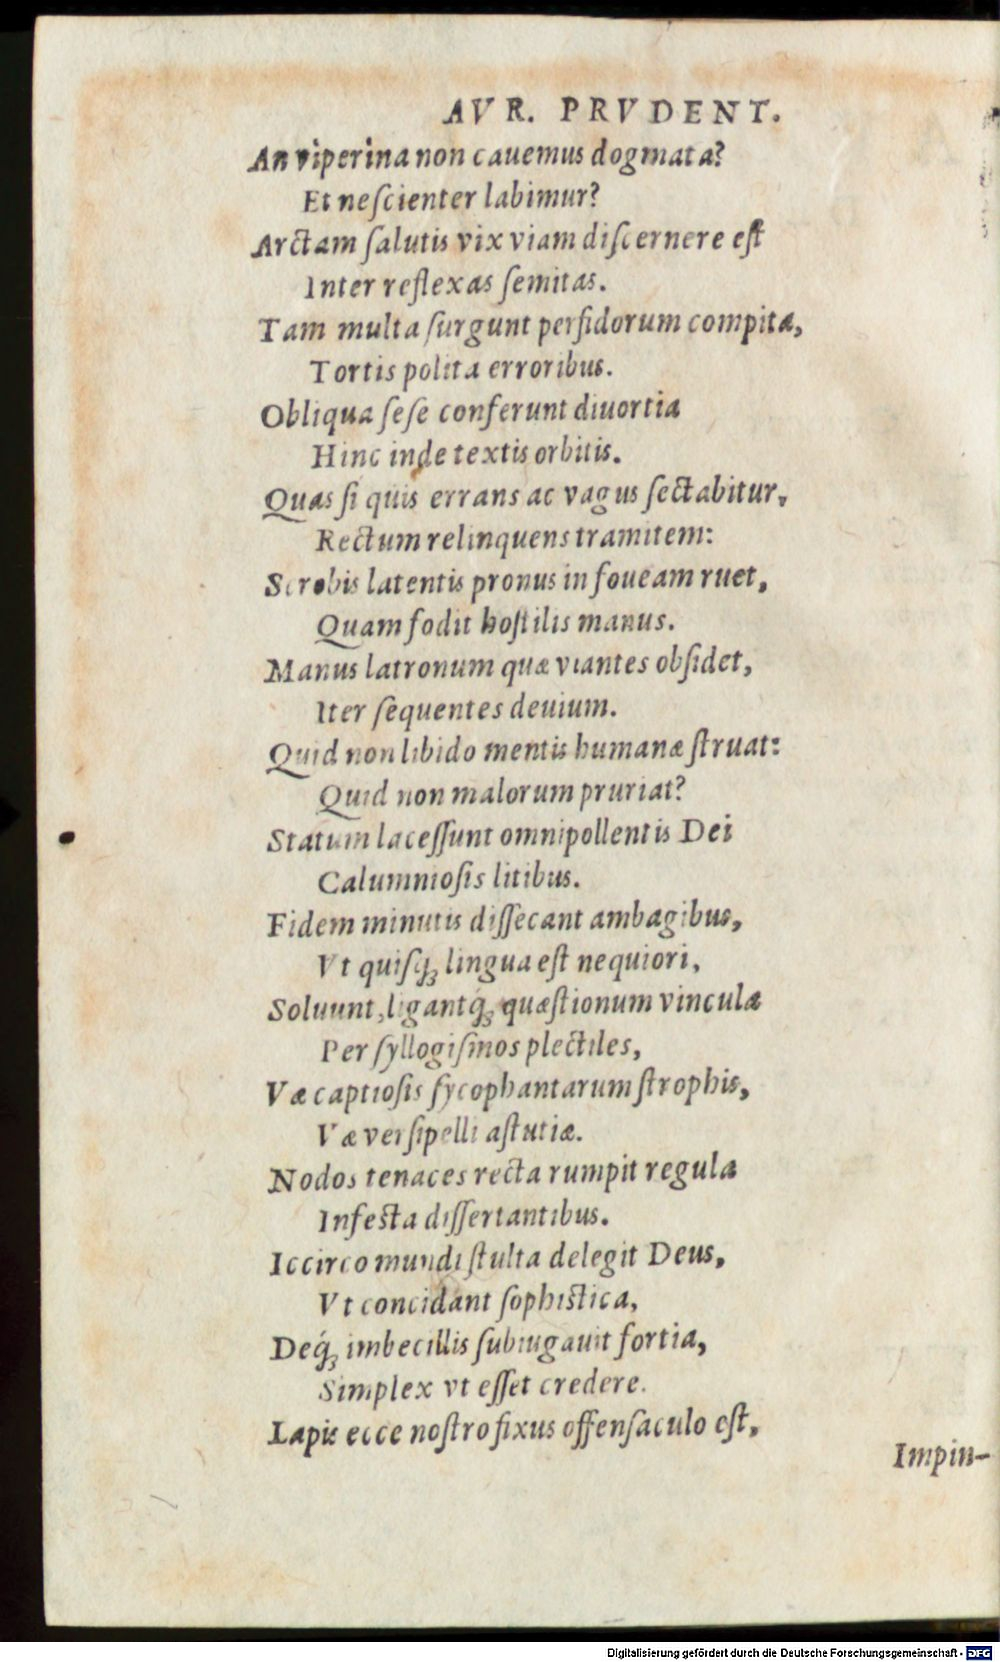 AVR. PRVDENT.
An viperina non cauemus dogmata?
Et neſcienter labimur?
Arctam ſalutis vix viam diſcernere eſt
Inter reflexas ſemitas.
Tam multa ſurgunt perfidorum compita,
Tortis polita erroribus.
Obliqua ſeſe conferunt diuortia
Hinc inde textis orbitis.
Quas ſi quis errans ac vagus ſectabitur,
Rectum relinquens tramitem:
Scrobis latentis pronus in foueam ruet,
Quam fodit hoſtilis manus.
Manus latronum quæ viantes obſidet,
Iter ſequentes deuium.
Quid non libido mentis humanæ ſtruat:
Quid non malorum pruriat?
Statum laceſſunt omnipollentis Dei
Calumnioſis litibus.
Fidem minutis diſſecant ambagibus,
Vt quiſq́; lingua eſt nequiori,
Soluunt, ligantq́; quæſtionum vincula
Per ſyllogiſmos plectiles,
Væ captioſis ſycophantarum ſtrophis,
Væ verſipelli aſtutiæ.
Nodos tenaces recta rumpit regula
Infeſta diſſertantibus.
Iccirco mundi ſtulta delegit Deus,
Vt concidant ſophiſtica,
Deq́; imbecillis ſubiugauit fortia,
Simplex vt eſſet credere.
Lapis ecce noſtro fixus offenſaculo eſt,
Impin-
Digitalisierung gefördert durch die Deutsche Forschungsgemeinschaft - DFG